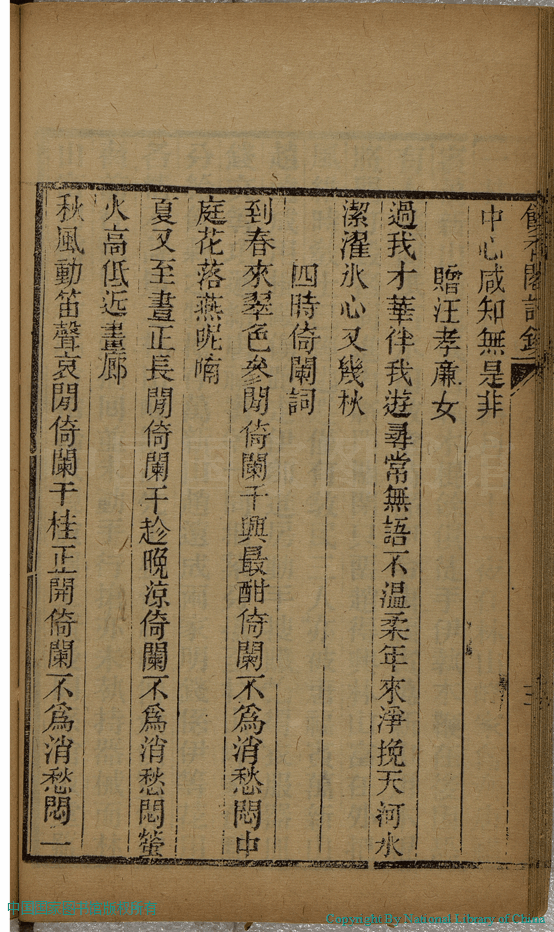 中心咸知無是非
贈汪孝廉女
過我才華伴我遊尋常無語不溫柔年來淨挽天河水
潔濯氷心又幾秋
四時倚闌詞
到春來翠色參閒倚闌干興最酣倚闌不爲消愁悶中
庭花落燕呢喃
夏又至晝正長閒倚闌干趁晚凉倚闌不爲消愁悶螢
火高低近畫廊
秋風動笛聲哀閒倚闌干桂正開倚闌不爲消愁悶一
Copyright By National Library of China